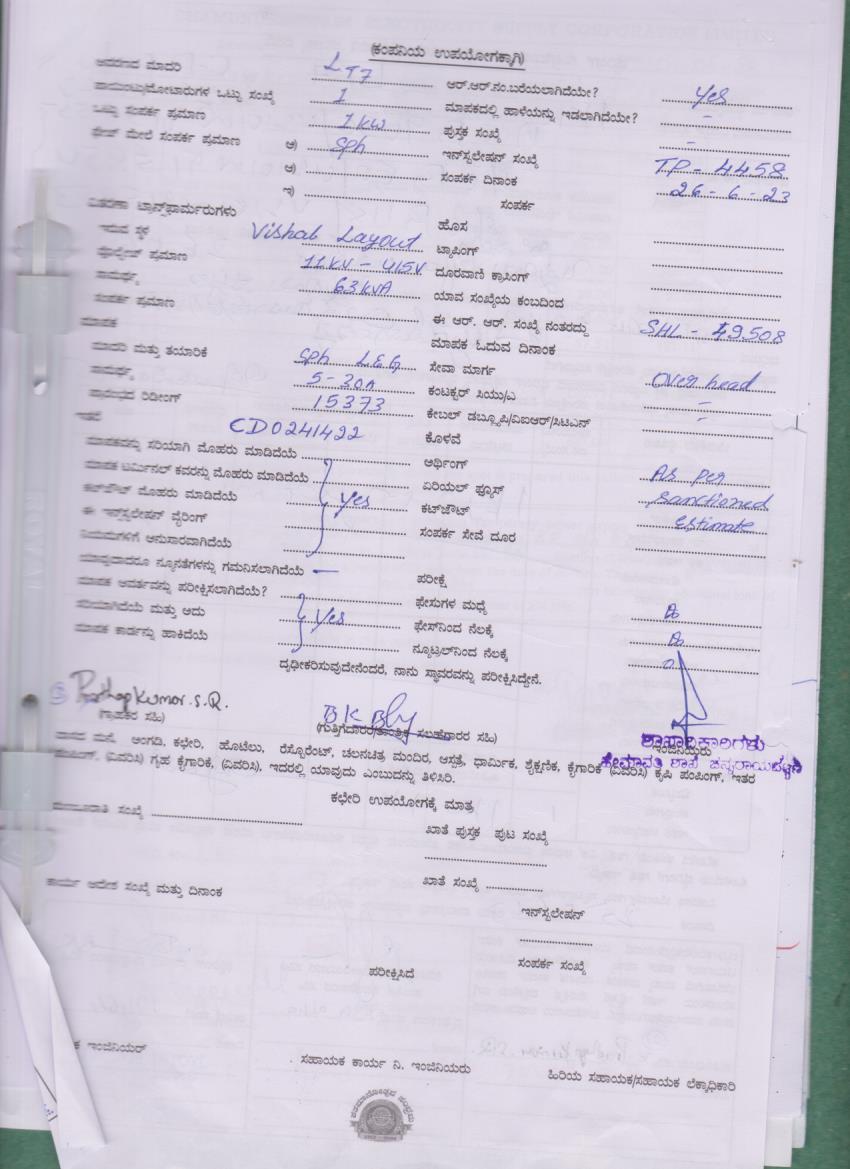 (ಕಂಪನಿಯ ಉಪಯೋಗಕ್ಕಾಗಿ)
ಆವರಣದ ಮಾದರಿ LT7 ಆರ್.ಆರ್.ನಂ.ಬರೆಯಲಾಗಿದೆಯೇ? yes
ಪಾಯಿಂಟ್ಸು/ಮೋಟಾರುಗಳ ಒಟ್ಟು ಸಂಖ್ಯೆ 1 ಮಾಪಕದಲ್ಲಿ ಹಾಳೆಯನ್ನು ಇಡಲಾಗಿದೆಯೇ? -
ಒಟ್ಟು ಸಂಪರ್ಕ ಪ್ರಮಾಣ 1 KW ಪುಸ್ತಕ ಸಂಖ್ಯೆ -
ಫೇಸ್ ಮೇಲೆ ಸಂಪರ್ಕ ಪ್ರಮಾಣ ಅ) Sph ಇನ್‌ಸ್ಟಲೇಷನ್ ಸಂಖ್ಯೆ TP - 4458
ಆ) ಸಂಪರ್ಕ ದಿನಾಂಕ 26 - 6 - 23
ಇ) ಸಂಪರ್ಕ
ವಿತರಣಾ ಟ್ರಾನ್ಸ್‌ಫಾರ್ಮರುಗಳು ಹೊಸ
ಇರುವ ಸ್ಥಳ Vishal Layout ಟ್ಯಾಪಿಂಗ್
ವೋಲ್ಟೇಜ್ ಪ್ರಮಾಣ 11KV - 415V ದೂರವಾಣಿ ಕ್ರಾಸಿಂಗ್
ಸಾಮರ್ಥ್ಯ 63KVA ಯಾವ ಸಂಖ್ಯೆಯ ಕಂಬದಿಂದ
ಸಂಪರ್ಕ ಪ್ರಮಾಣ ಈ ಆರ್. ಆರ್. ಸಂಖ್ಯೆ ನಂತರದ್ದು SHL - 49508
ಮಾಪಕ ಮಾಪಕ ಓದುವ ದಿನಾಂಕ
ಮಾದರಿ ಮತ್ತು ತಯಾರಿಕೆ Sph L&G ಸೇವಾ ಮಾರ್ಗ Over head
ಸಾಮರ್ಥ್ಯ 5-30A ಕಂಟಕ್ಟರ್ ಸಿಯು/ಎ -
ಪ್ರಾರಂಭದ ರಿಡೀಂಗ್ 15373 ಕೇಬಲ್ ಡಬ್ಲ್ಯೂಪಿ/ವಿಐಆರ್/ಸಿಟಿಎನ್ -
ಇತರೆ CD0241422 ಕೊಳವೆ
ಮಾಪಕವನ್ನು ಸರಿಯಾಗಿ ಮೊಹರು ಮಾಡಿದೆಯೆ ಅರ್ಥಿಂಗ್ As per
ಮಾಪಕ ಟರ್ಮಿನಲ್ ಕವರನ್ನು ಮೊಹರು ಮಾಡಿದೆಯೆ ಏರಿಯಲ್ ಫ್ಯೂಸ್ sanctioned
ಕಟ್‌ಔಟ್ ಮೊಹರು ಮಾಡಿದೆಯೆ yes ಕಟ್‌ಔಟ್ estimate
ಈ ಇನ್‌ಸ್ಟಲೇಷನ್ ವೈರಿಂಗ್ ಸಂಪರ್ಕ ಸೇವೆ ದೂರ
ನಿಯಮಗಳಿಗೆ ಅನುಸಾರವಾಗಿದೆಯೆ
ಯಾವುದಾದರೂ ನ್ಯೂನತೆಗಳನ್ನು ಗಮನಿಸಲಾಗಿದೆಯೆ — ಪರೀಕ್ಷೆ
ಮಾಪಕ ಆವರ್ತವನ್ನು ಪರೀಕ್ಷಿಸಲಾಗಿದೆಯೆ? ಫೇಸುಗಳ ಮಧ್ಯೆ
ಸರಿಯಾಗಿದೆಯೆ ಮತ್ತು ಅದು yes ಫೇಸ್‌ನಿಂದ ನೆಲಕ್ಕೆ
ಮಾಪಕ ಕಾರ್ಡನ್ನು ಹಾಕಿದೆಯೆ ನ್ಯೂಟ್ರಲ್‌ನಿಂದ ನೆಲಕ್ಕೆ
ದೃಢೀಕರಿಸುವುದೇನೆಂದರೆ, ನಾನು ಸ್ಥಾವರವನ್ನು ಪರೀಕ್ಷಿಸಿದ್ದೇನೆ.
(ಗ್ರಾಹಕರ ಸಹಿ) (ಗುತ್ತಿಗೆದಾರರ/ತಾಂತ್ರಿಕ ಸಲಹೆಗಾರರ ಸಹಿ) ಇಂಜಿನಿಯರು
ಶಾಖಾಧಿಕಾರಿಗಳು
ಹೇಮಾವತಿ ಶಾಖೆ ಚನ್ನರಾಯಪಟ್ಟಣ
ವಾಸದ ಮನೆ, ಅಂಗಡಿ, ಕಛೇರಿ, ಹೊಟೆಲು, ರೆಸ್ಟೋರೆಂಟ್, ಚಲನಚಿತ್ರ ಮಂದಿರ, ಆಸ್ಪತ್ರೆ, ಧಾರ್ಮಿಕ, ಶೈಕ್ಷಣಿಕ, ಕೈಗಾರಿಕೆ (ವಿವರಿಸಿ) ಕೃಷಿ ಪಂಪಿಂಗ್, ಇತರ
ಪಂಪಿಂಗ್, (ವಿವರಿಸಿ) ಗೃಹ ಕೈಗಾರಿಕೆ, (ವಿವರಿಸಿ), ಇದರಲ್ಲಿ ಯಾವುದು ಎಂಬುದನ್ನು ತಿಳಿಸಿರಿ.
ಕಛೇರಿ ಉಪಯೋಗಕ್ಕೆ ಮಾತ್ರ
ಸಂಖ್ಯೆ ಖಾತೆ ಪುಸ್ತಕ ಪುಟ ಸಂಖ್ಯೆ
ಕಾರ್ಯ ಆದೇಶ ಸಂಖ್ಯೆ ಮತ್ತು ದಿನಾಂಕ ಖಾತೆ ಸಂಖ್ಯೆ
ಇನ್‌ಸ್ಟಲೇಷನ್
ಸಂಪರ್ಕ ಸಂಖ್ಯೆ
ಪರೀಕ್ಷಿಸಿದೆ
ಇಂಜಿನಿಯರ್ ಸಹಾಯಕ ಕಾರ್ಯ ನಿ. ಇಂಜಿನಿಯರು ಹಿರಿಯ ಸಹಾಯಕ/ಸಹಾಯಕ ಲೆಕ್ಕಾಧಿಕಾರಿ